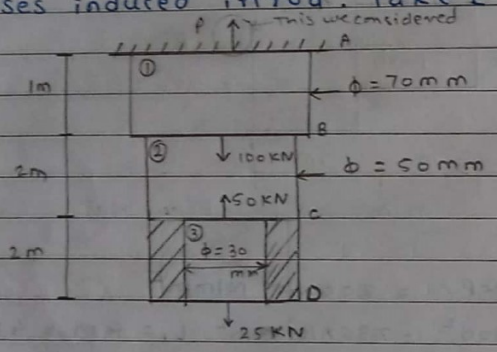 ses induced
P This we considered
A
①
1m
φ = 70mm
B
②
100KN
2m
φ = 50mm
50KN
C
③
2m
φ = 30
mm
D
25KN